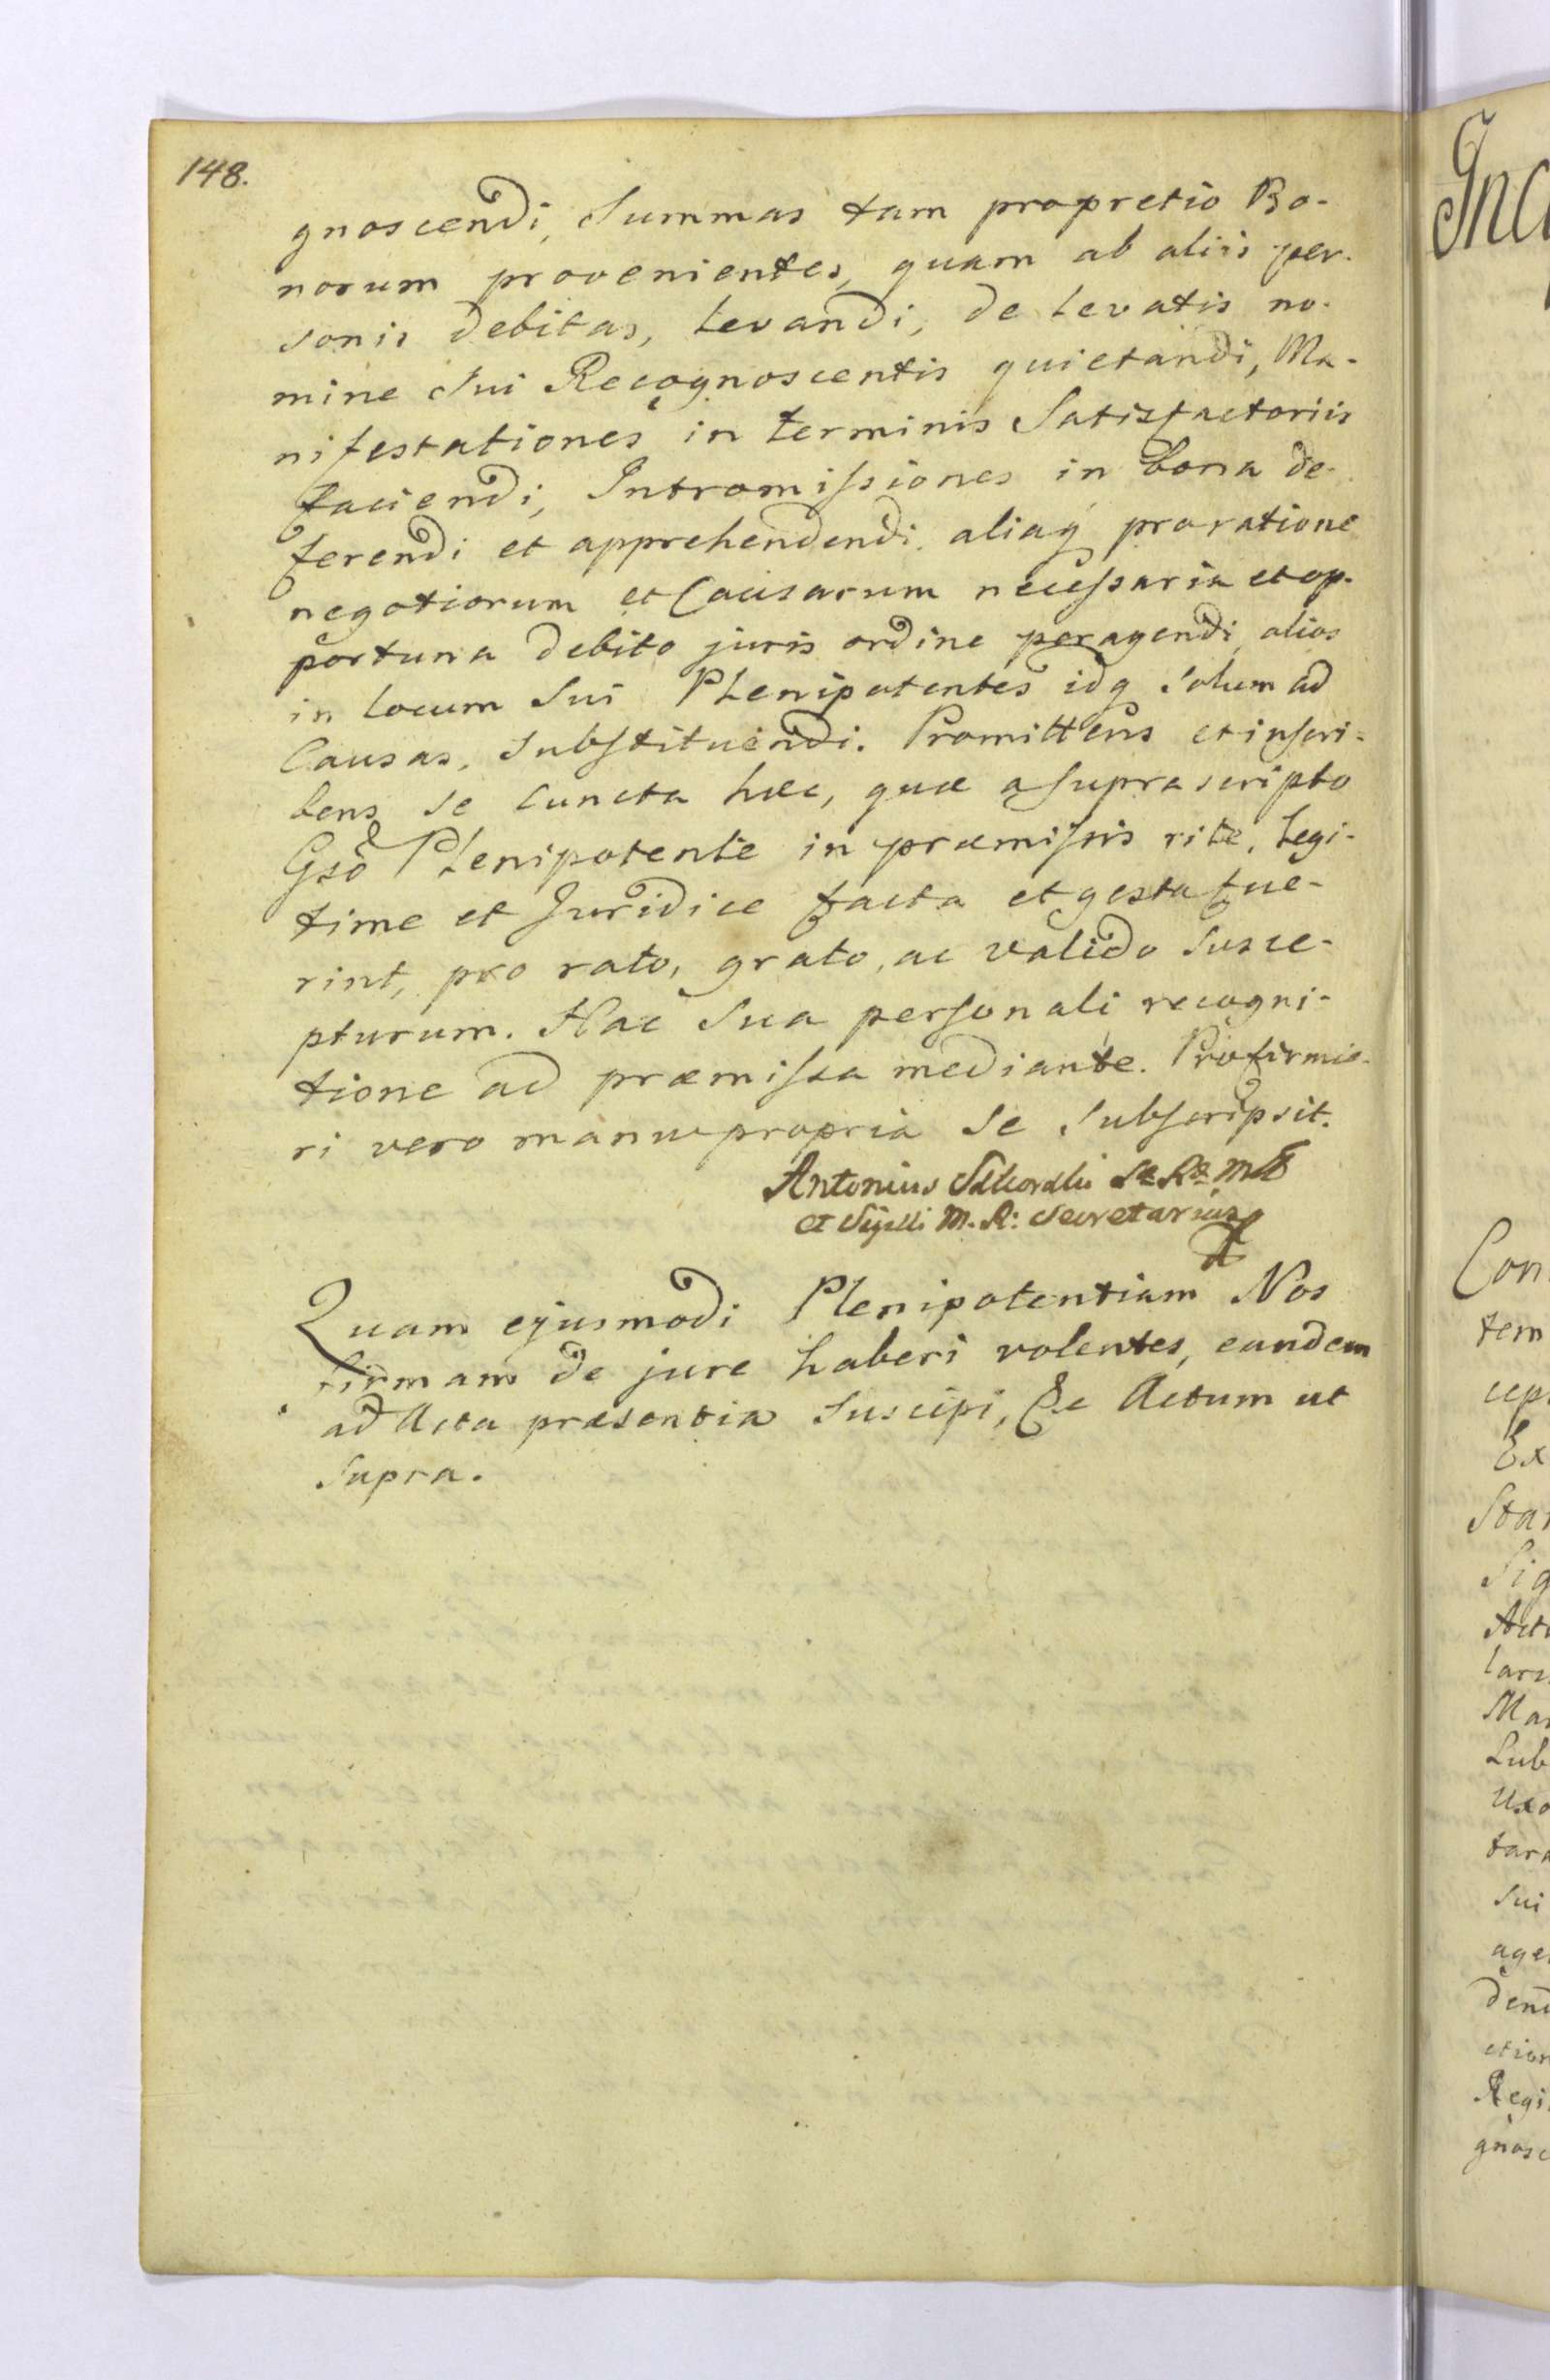 148.
gnoscendi, Summas tam propretio Bo-
norum provenientes, quam ab aliis per-
sonis debitas, levandi, de levatis no-
mine sui Recognoscentis quietandi, Ma-
nifestationes in terminis Satisfactoriis
faciendi, Intromissiones in bona de-
ferendi et apprehendendi. aliaq proratione
negotiorum et Causarum necessaria et op-
portuna debito juris ordine peragendi, alios
in locum Sui Plenipotentes idq solum ad
Causas, substituendi. Promittens et inscri-
bens se cuncta hæc, quæ a suprascripto
Gso Plenipotente in præmissis rite, legi-
time et Juridice facta et gesta fue-
rint, pro rato, grato, ac valido susce-
pturum. Hac sua personali recogni-
tione ad præmissa mediante. Profirmio-
ri vero manu propria se subscripsit.
Antonius
et M. R: Secretarius
Quam ejusmodi Plenipotentiam Nos
firmam de jure haberi volentes, eandem
ad Acta præsentia suscipi, &c Actum ut
supra.
Inc
Con
tem
cep
Ex
Sta
Sig
Act
lars
Mar
Lub
Uxo
tara
sui
age
dend
ction
Regi
gnosc